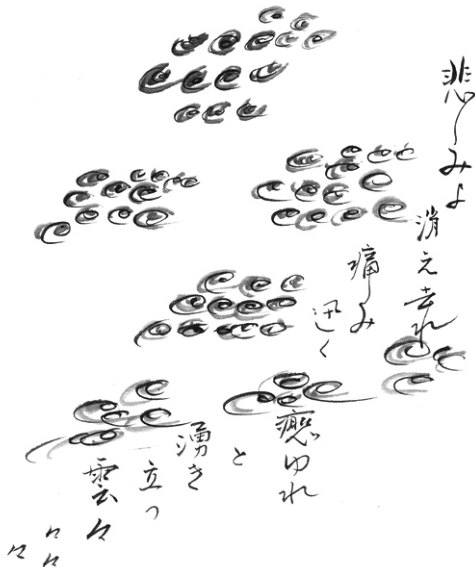 悲しみよ
消え去れ
痛み
迅く
癒ゆれ
と
湧き
立つ
雲々々
々々
々